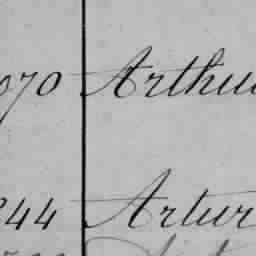 070 Arthu
244 Artur